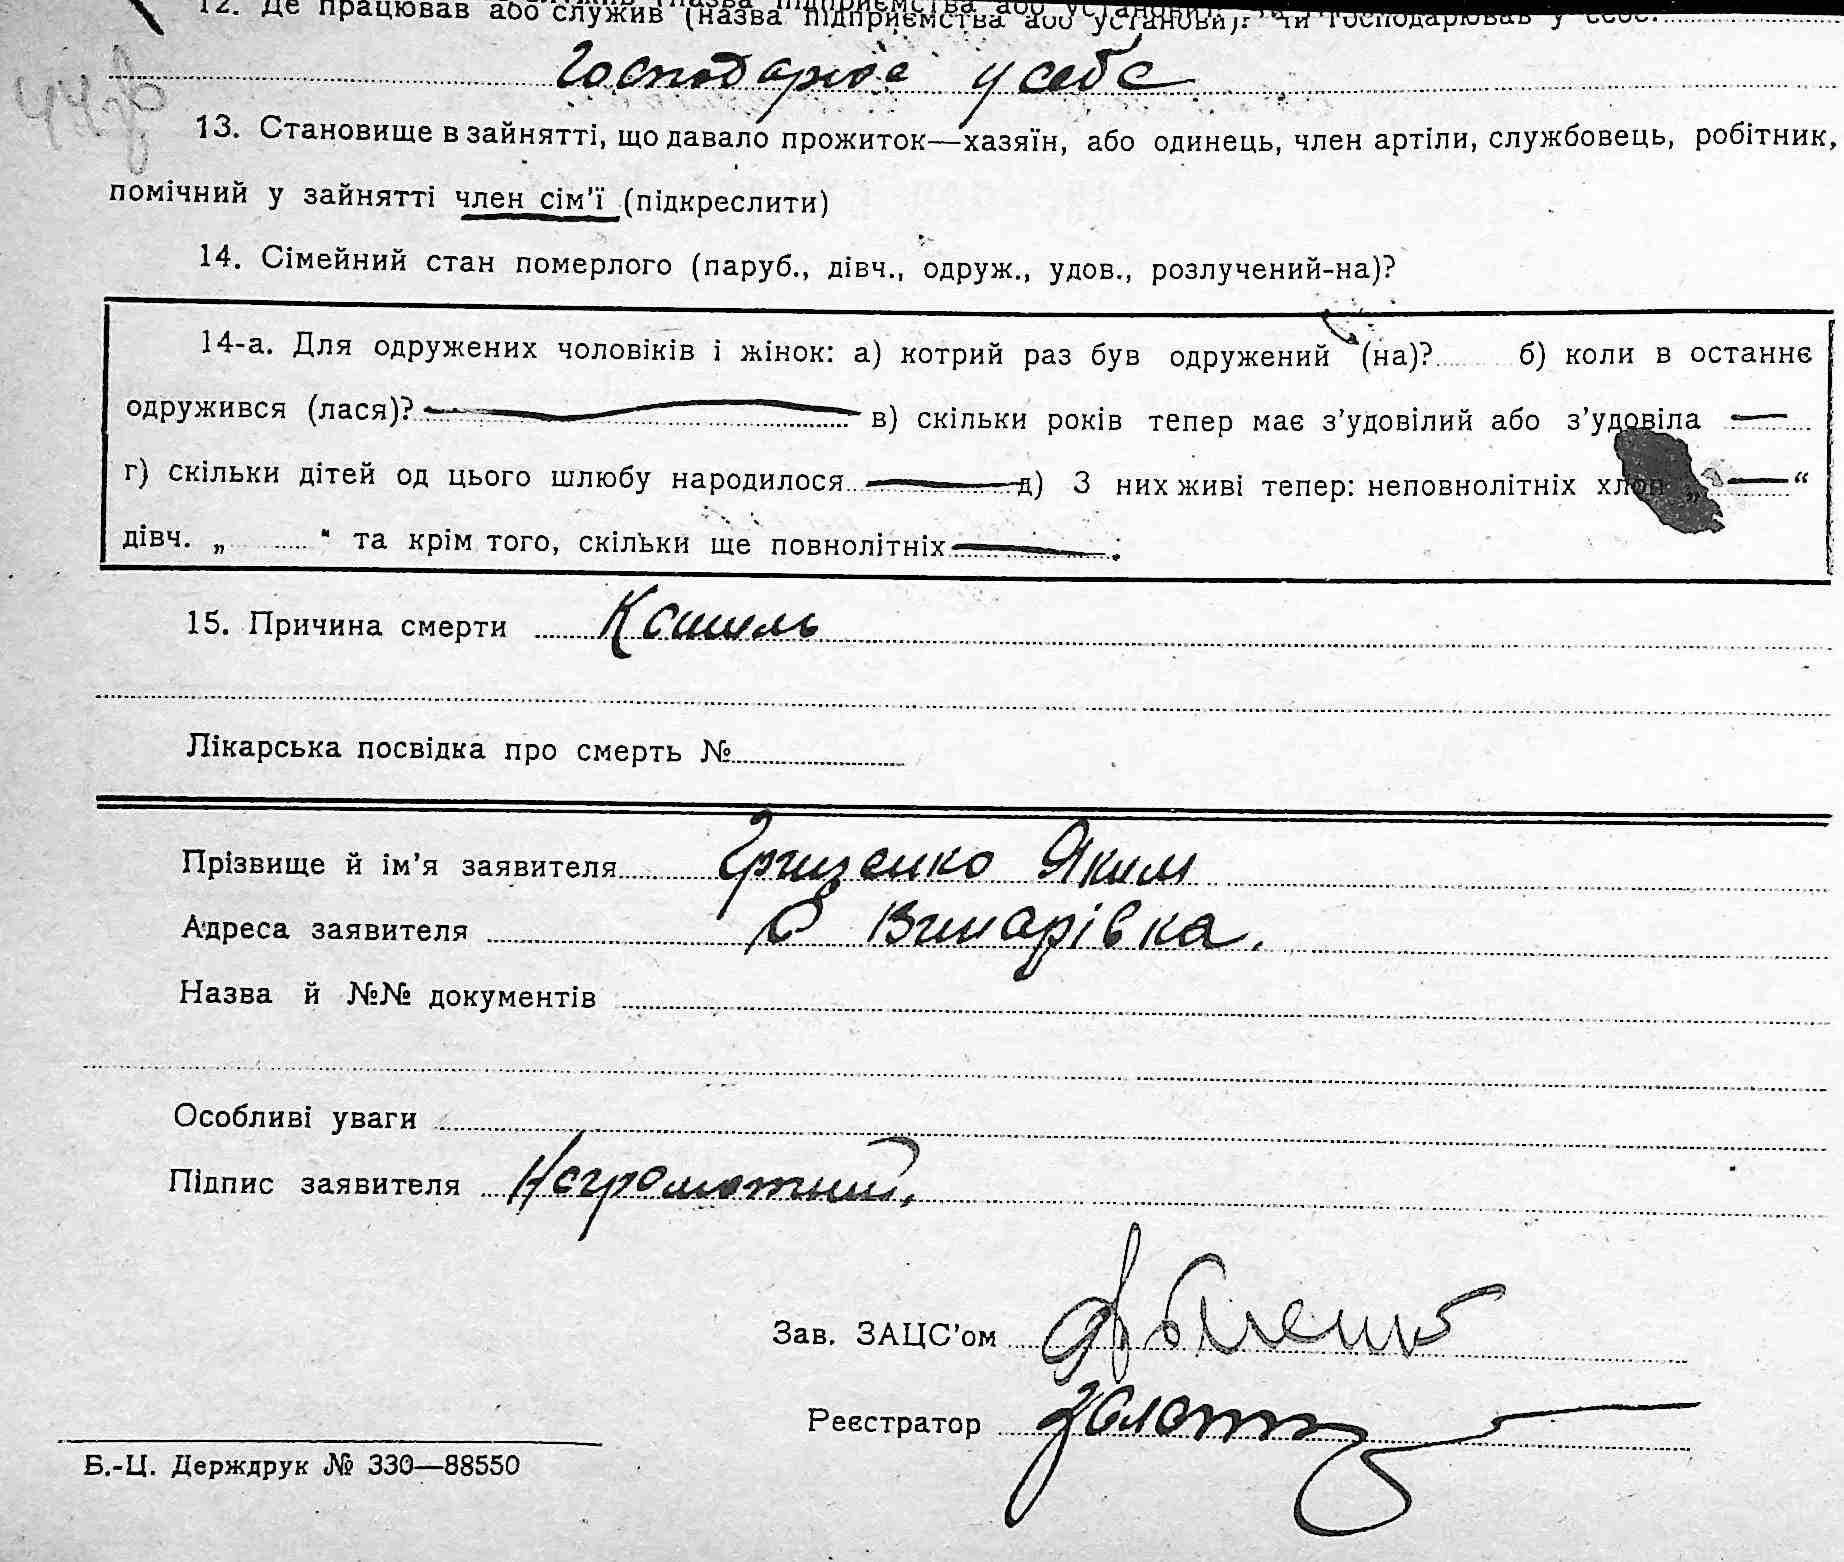 12. Де працював або служив (назва підприємства або установи)? Чи господарював у себе?
Господарює у себе
13. Становище в зайнятті, що давало прожиток—хазяїн, або одинець, член артіли, службовець, робітник,
помічний у зайнятті член сім'ї (підкреслити)
14. Сімейний стан померлого (паруб., дівч., одруж., удов., розлучений-на)?
14-а. Для одружених чоловіків і жінок: а) котрий раз був одружений (на)? б) коли в останнє
одружився (лася)? в) скільки років тепер має з'удовілий або з'удовіла —
г) скільки дітей од цього шлюбу народилося — д) З них живі тепер: неповнолітніх хлоп „ — “
дівч. „ “ та крім того, скільки ще повнолітніх — .
15. Причина смерти Кашель
Лікарська посвідка про смерть №
Прізвище й ім'я заявителя Гриценко Яким
Адреса заявителя С Винарівка.
Назва й №№ документів
Особливі уваги
Підпис заявителя Неграмотний,
Зав. ЗАЦС'ом
Реєстратор
Б.-Ц. Держдрук № 330—88550